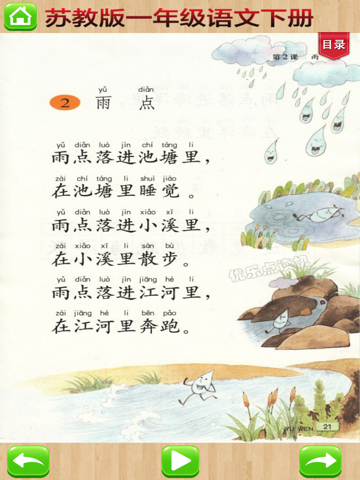 苏教版一年级语文下册
目录
第2课 雨
yǔ diǎn
2 雨 点
yǔ diǎn luò jìn chí táng lǐ
雨点落进池塘里，
zài chí táng lǐ shuì jiào
在池塘里睡觉。
yǔ diǎn luò jìn xiǎo xī lǐ
雨点落进小溪里，
zài xiǎo xī lǐ sàn bù
在小溪里散步。
yǔ diǎn luò jìn jiāng hé lǐ
雨点落进江河里，
zài jiāng hé lǐ bēn pǎo
在江河里奔跑。
优乐点读机
YU WEN 21